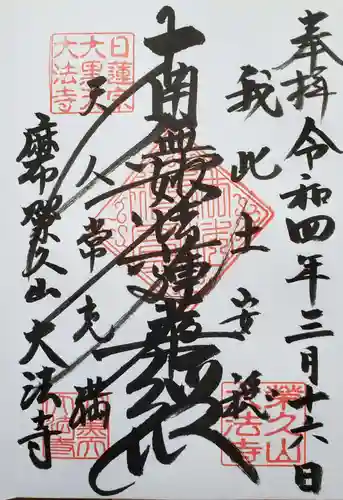 奉拝 令和四年三月十六日
我此土安穏
南無妙法蓮華経
天人常充満
麻布 榮久山 大法寺
日蓮宗
大黒天
大法寺
榮久山
大法寺